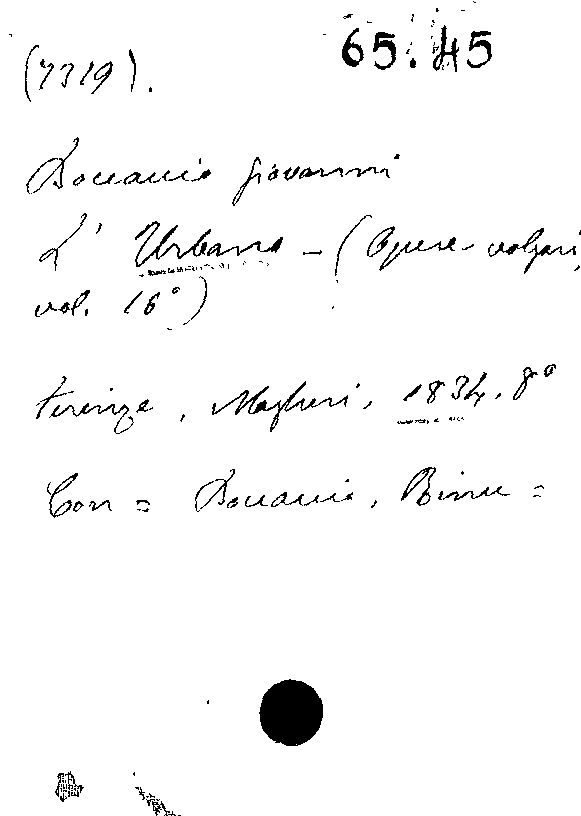 65.45
(7319).
Boccaccio Giovanni
L' Urbano – (Opere volgari,
vol. 16°)
Firenze, Magheri, 1834. 8°
Con = Boccaccio, Rime =